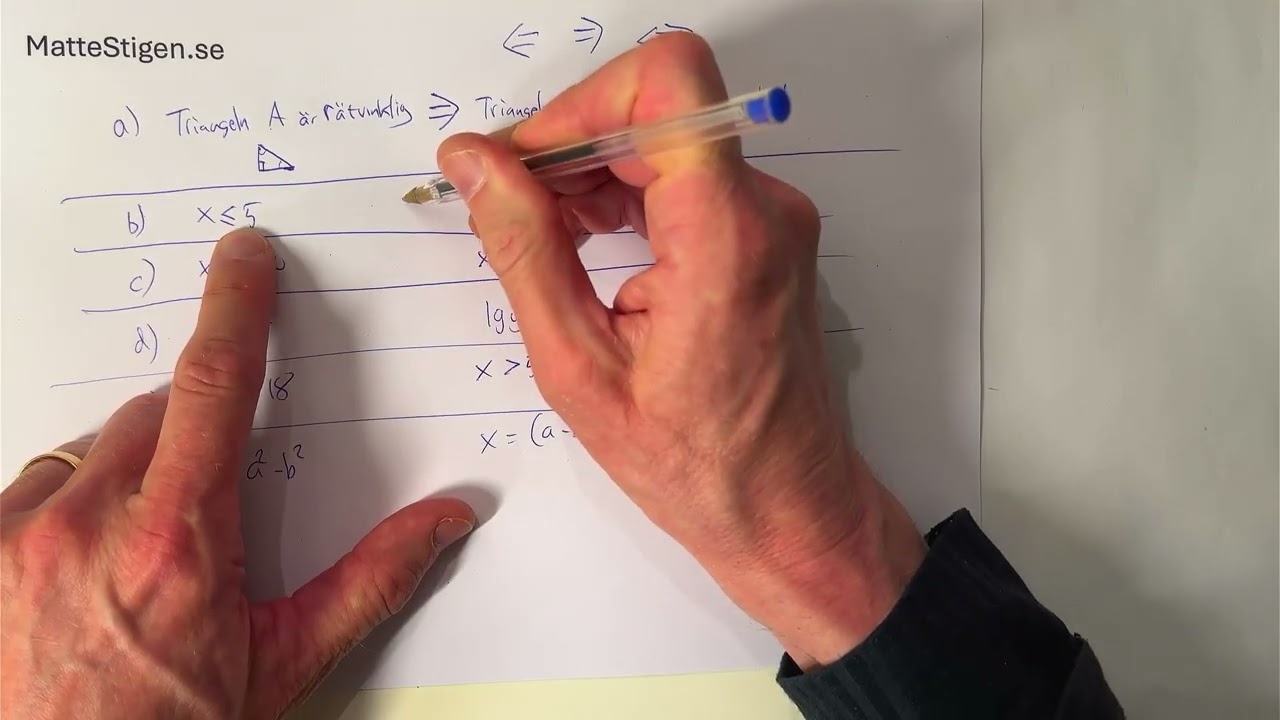 MatteStigen.se
⇐ ⇒
a) Triangeln A är rätvinklig ⇒
b) x ≤ 5
c) x
d) lgy
18 x >
a² - b² x = (a -